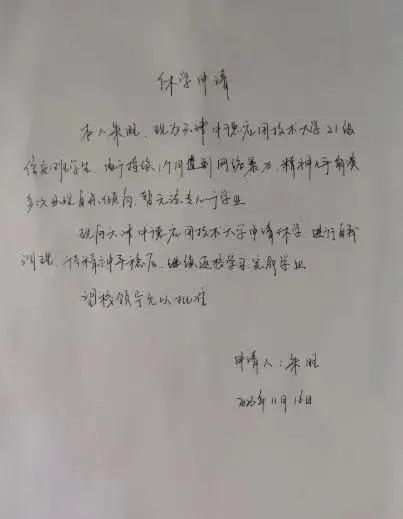 休学申请
本人朱旺，现为天津中德应用技术大学21级
信安班学生，由于持续1个月遭到网络暴力，精神几乎崩溃
多次出现自杀倾向，暂无法专心于学业
现向天津中德应用技术大学申请休学，进行自我
调理，待精神平稳后，继续返校学习完成学业
望校领导允以批准
申请人：朱旺
2023年11月16日